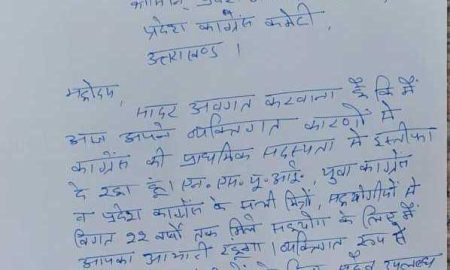 प्रदेश कांग्रेस कमेटी,
उत्तराखण्ड।
महोदय,
सादर अवगत करवाना है कि मैं
आज अपने व्यक्तिगत कारणों से
कांग्रेस की प्राथमिक सदस्यता से इस्तीफा
दे रहा हूं। एन. एस. यू. आई., युवा कांग्रेस
व प्रदेश कांग्रेस के सभी मित्रों, सहयोगीयों से
विगत 22 वर्षों तक मिले सहयोग के लिए मैं
आपका आभारी रहूंगा। व्यक्तिगत रूप से
के लिए उपलब्ध